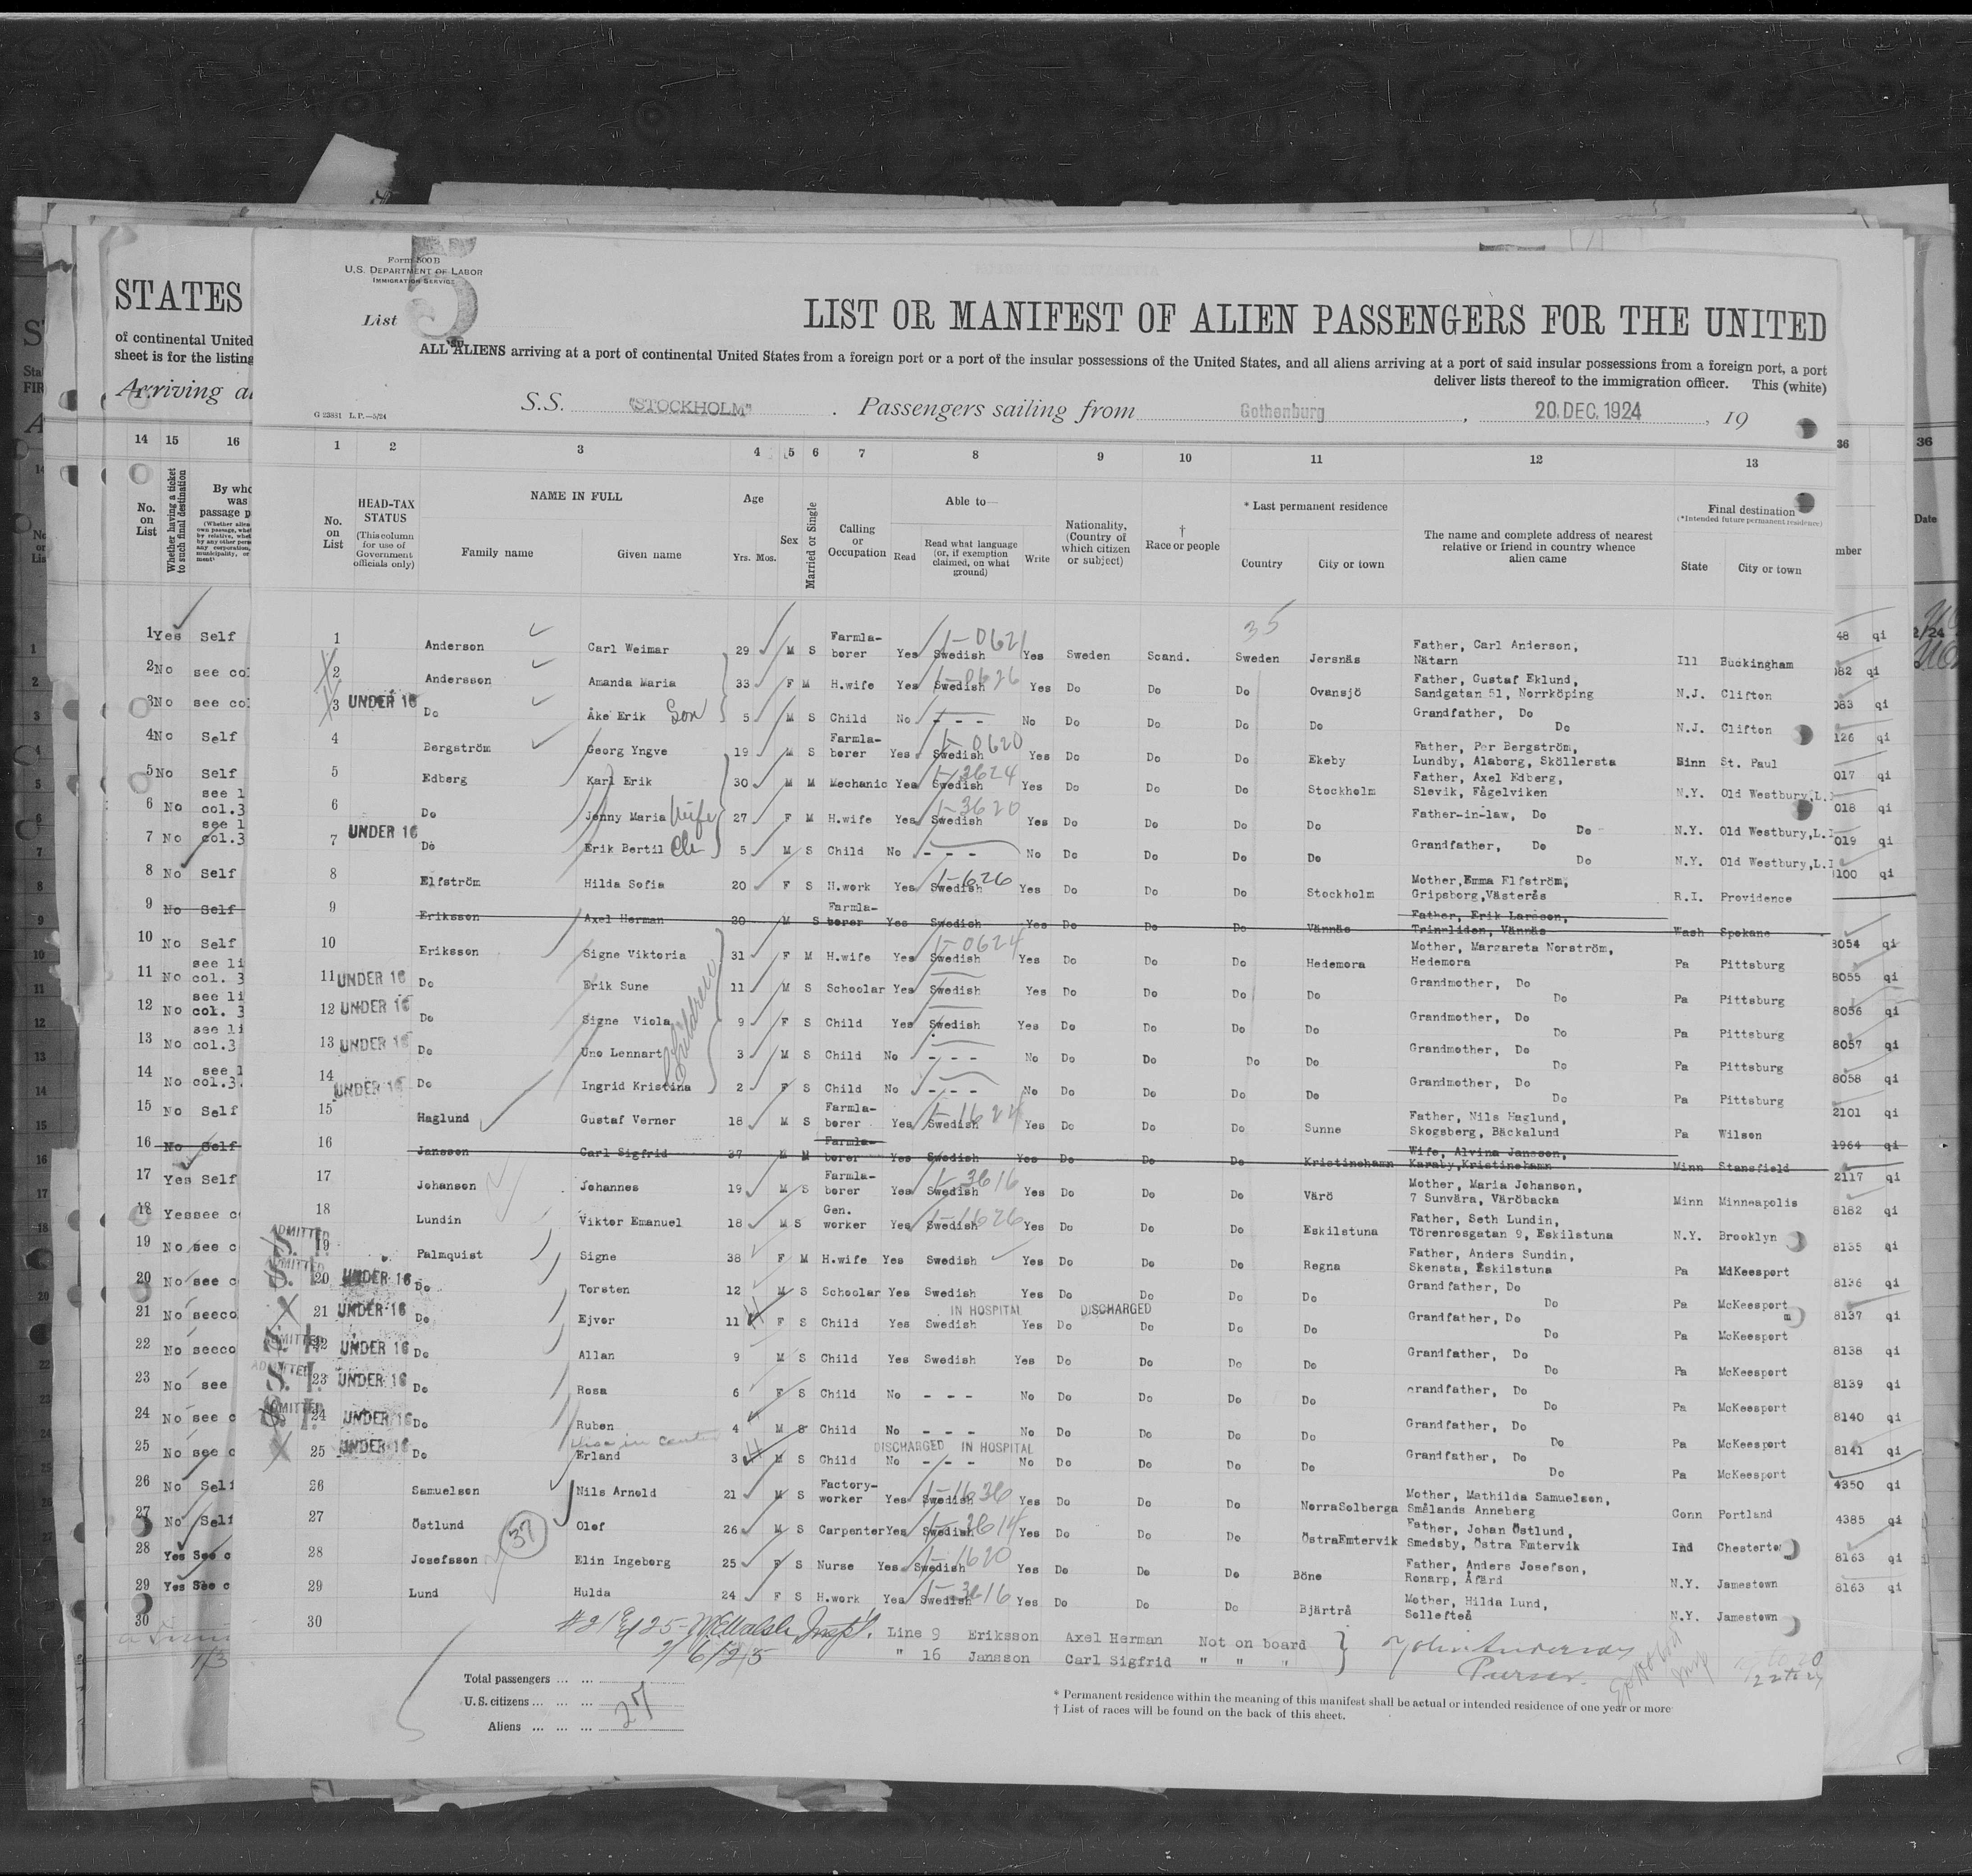 Form 500B
U.S. DEPARTMENT OF LABOR
IMMIGRATION SERVICE
List 5
STATES
LIST OR MANIFEST OF ALIEN PASSENGERS FOR THE UNITED
of continental United
sheet is for the listing
ALL ALIENS arriving at a port of continental United States from a foreign port or a port of the insular possessions of the United States, and all aliens arriving at a port of said insular possessions from a foreign port, a port
deliver lists thereof to the immigration officer. This (white)
Arriving a
G 23881 L.P.—5/24
S.S. "STOCKHOLM" . Passengers sailing from Gothenburg , 20. DEC. 1924 , 19
14 15 16 1 2 3 4 5 6 7 8 9 10 11 12 13 36 36
No. on List
Whether having a ticket to such final destination
By who was passage p
No. on List
HEAD-TAX STATUS
(This column for use of Government officials only)
NAME IN FULL
Family name
Given name
Age
Yrs. Mos.
Sex
Married or Single
Calling or Occupation
Able to—
Read
Read what language (or, if exemption claimed, on what ground)
Write
Nationality, (Country of which citizen or subject)
† Race or people
* Last permanent residence
Country
City or town
The name and complete address of nearest relative or friend in country whence alien came
Final destination
(*Intended future permanent residence)
State
City or town
mber
Date
35
1 Yes Self 1 Anderson Carl Weimar 29 M S Farmla-borer Yes Swedish 1-0621 Yes Sweden Scand. Sweden Jersnäs Father, Carl Anderson, Nätarn Ill Buckingham 48 qi
2 No see col 2 Andersson Amanda Maria 33 F M H.wife Yes Swedish 1-0626 Yes Do Do Do Ovansjö Father, Gustaf Eklund, Sandgatan 51, Norrköping N.J. Clifton 082 qi
3 No see co 3 UNDER 16 Do Åke Erik Son 5 M S Child No - - - No Do Do Do Do Grandfather, Do Do N.J. Clifton 083 qi
4 No Self 4 Bergström Georg Yngve 19 M S Farmla-borer Yes Swedish 1-0620 Yes Do Do Do Ekeby Father, Per Bergström, Lundby, Alaborg, Sköllersta Minn St. Paul 126 qi
5 No Self 5 Edberg Karl Erik 30 M M Mechanic Yes Swedish 1-3624 Yes Do Do Do Stockholm Father, Axel Edberg, Slevik, Fågelviken N.Y. Old Westbury,L.I 017 qi
6 No see l col.3 6 Do Jenny Maria Wife 27 F M H.wife Yes Swedish 1-3620 Yes Do Do Do Do Father-in-law, Do Do N.Y. Old Westbury,L.I 018 qi
7 No see l col.3 7 UNDER 16 Do Erik Bertil Ch 5 M S Child No - - - No Do Do Do Do Grandfather, Do Do N.Y. Old Westbury,L.I 019 qi
8 No Self 8 Elfström Hilda Sofia 20 F S H.work Yes Swedish 1-626 Yes Do Do Do Stockholm Mother,Emma Elfström, Gripsborg,Västerås R.I. Providence 100 qi
9 No Self 9 Eriksson Axel Herman 20 M S Farmla-borer Yes Swedish Yes Do Do Do Vännäs Father, Erik Larsson, Trinnliden, Vännäs Wash Spokane
10 No Self 10 Eriksson Signe Viktoria 31 F M H.wife Yes Swedish 1-0624 Yes Do Do Do Hedemora Mother, Margareta Norström, Hedemora Pa Pittsburg 8054 qi
Children
11 No see li col. 3 11 UNDER 16 Do Erik Sune 11 M S Schoolar Yes Swedish Yes Do Do Do Do Grandmother, Do Do Pa Pittsburg 8055 qi
12 No see li col. 3 12 UNDER 16 Do Signe Viola 9 F S Child Yes Swedish Yes Do Do Do Do Grandmother, Do Do Pa Pittsburg 8056 qi
13 No see li col.3 13 UNDER 16 Do Uno Lennart 3 M S Child No - - - No Do Do Do Do Grandmother, Do Do Pa Pittsburg 8057 qi
14 No see l col.3. 14 UNDER 16 Do Ingrid Kristina 2 F S Child No - - - No Do Do Do Do Grandmother, Do Do Pa Pittsburg 8058 qi
15 No Self 15 Haglund Gustaf Verner 18 M S Farmla-borer Yes Swedish 1-1624 Yes Do Do Do Sunne Father, Nils Haglund, Skogsberg, Bäckalund Pa Wilson 2101 qi
16 No Self 16 Jansson Carl Sigfrid 37 M M Farmla-borer Yes Swedish Yes Do Do Do Kristinehamn Wife, Alvina Jansson, Karaby,Kristinehamn Minn Stansfield 1964 qi
17 Yes Self 17 Johanson Johannes 19 M S Farmla-borer Yes Swedish 1-3616 Yes Do Do Do Värö Mother, Maria Johanson, 7 Sunvära, Väröbacka Minn Minneapolis 2117 qi
18 Yes see c 18 Lundin Viktor Emanuel 18 M S Gen. worker Yes Swedish 1-1626 Yes Do Do Do Eskilstuna Father, Seth Lundin, Törenrosgatan 9, Eskilstuna N.Y. Brooklyn 8182 qi
19 No see c ADMITTED S. I. 19 Palmquist Signe 38 F M H.wife Yes Swedish Yes Do Do Do Regna Father, Anders Sundin, Skensta, Eskilstuna Pa McKeesport 8135 qi
20 No see c ADMITTED S. I. 20 UNDER 16 Do Torsten 12 M S Schoolar Yes Swedish Yes Do Do Do Do Grandfather, Do Do Pa McKeesport 8136 qi
IN HOSPITAL DISCHARGED
21 No seeco X 21 UNDER 16 Do Ejvor 11 F S Child Yes Swedish Yes Do Do Do Do Grandfather, Do Do Pa McKeesport 8137 qi
22 No seeco ADMITTED S. I. 22 UNDER 16 Do Allan 9 M S Child Yes Swedish Yes Do Do Do Do Grandfather, Do Do Pa McKeesport 8138 qi
23 No see ADMITTED S. I. 23 UNDER 16 Do Rosa 6 F S Child No - - - No Do Do Do Do Grandfather, Do Do Pa McKeesport 8139 qi
24 No see c ADMITTED S. I. 24 UNDER 16 Do Ruben 4 M S Child No - - - No Do Do Do Do Grandfather, Do Do Pa McKeesport 8140 qi
DISCHARGED IN HOSPITAL
25 No see c X 25 UNDER 16 Do Erland 3 M S Child No - - - No Do Do Do Do Grandfather, Do Do Pa McKeesport 8141 qi
26 No Self 26 Samuelson Nils Arnold 21 M S Factory-worker Yes Swedish 1-1636 Yes Do Do Do NorraSolberga Mother, Mathilda Samuelson, Smålands Anneberg Conn Portland 4350 qi
27 No Self 27 Östlund Olof 26 M S Carpenter Yes Swedish 1-3614 Yes Do Do Do ÖstraEmtervik Father, Johan Östlund, Smedsby, Östra Emtervik Ind Chesterto 4385 qi
37
28 Yes See c 28 Josefsson Elin Ingeborg 25 F S Nurse Yes Swedish 1-1620 Yes Do Do Do Böne Father, Anders Josefson, Ronarp, Åfärd N.Y. Jamestown 8163 qi
29 Yes See c 29 Lund Hulda 24 F S H.work Yes Swedish 1-3616 Yes Do Do Do Bjärtrå Mother, Hilda Lund, Sollefteå N.Y. Jamestown 8163 qi
30 30
#21 & 25- W.E. Walsh Insp't.
2/6/25
Line 9 Eriksson Axel Herman Not on board
" 16 Jansson Carl Sigfrid " " "
John Anderson
Purser.
Total passengers ... ...
U.S. citizens ... ... ...
Aliens ... ... ... 27
* Permanent residence within the meaning of this manifest shall be actual or intended residence of one year or more
† List of races will be found on the back of this sheet.